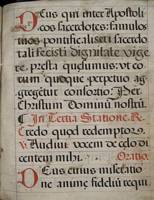 Deus qui inter Apostoli
cos sacerdotes: famulos
tuos pontificali seu sacerdo
tali fecisti dignitate vige
re: presta quesumus: vt eo
rum quoque perpetuo ag
gregetur consortio: Per
Christum Dominũ nostrũ.
In Tertia Statione. R.
Credo quod redemptor. ꝟ.
Audiui vocem de celo di
centem mihi. Oratio.
Deus cuius miseratio
ne anime fideliũ requi